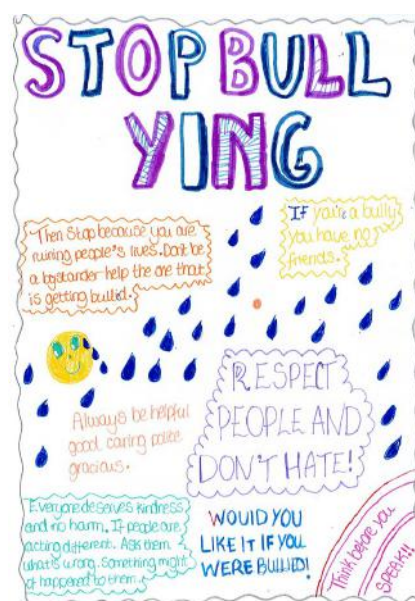 STOP BULL
YING
Then Stop because you are
ruining people's lives. Dont be
a bystander help the one that
is getting bullid.
IF you're a bully
you have no
friends.
RESPECT
PEOPLE AND
DON'T HATE!
Always be helpful
good caring polite
gracious.
Everyone deserves kindness
and no harm. If people are
acting different. Ask them
what is wrong. Something might
of happened to them.
WOULD YOU
LIKE IT IF YOU
WERE BULLIED!
Think before you
SPEAK!!